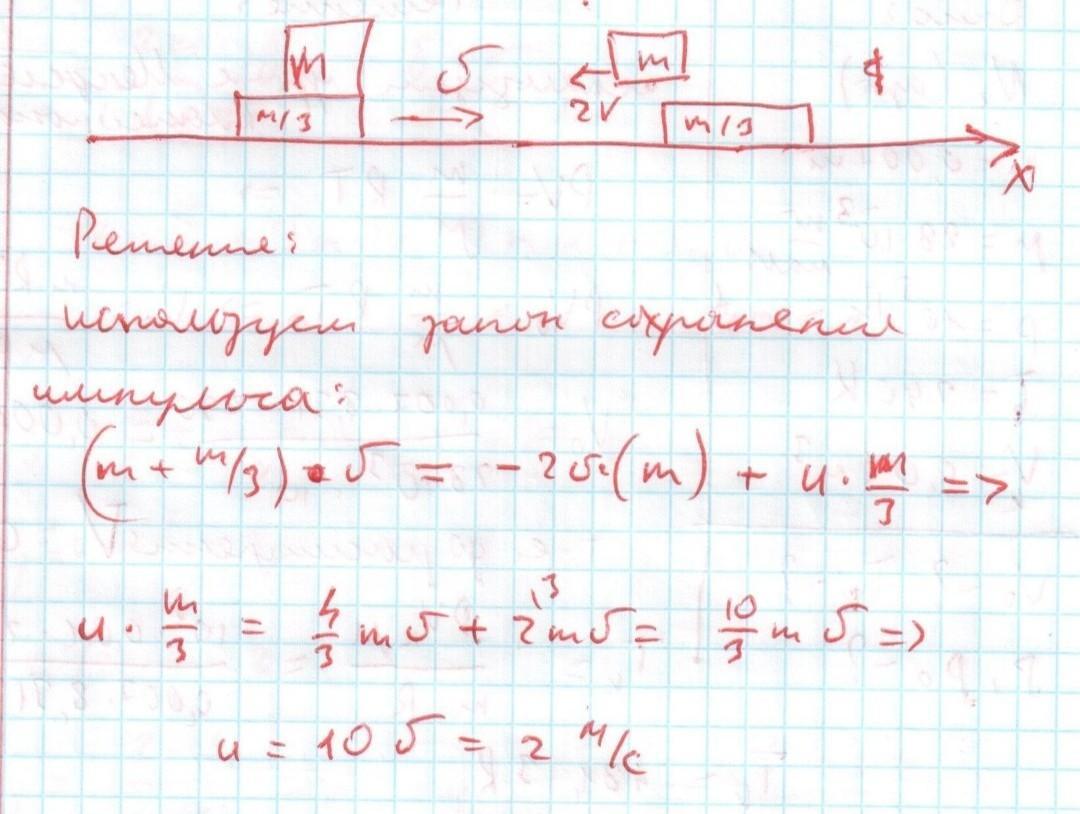 m
m/3
υ
m
2v
m/3
x
Решение:
используем закон сохранения
импульса:
(m + m/3) · υ = - 2υ·(m) + u · m/3 =>
u · m/3 = 4/3 m υ + 2 m υ \3 = 10/3 m υ =>
u = 10 υ = 2 м/с